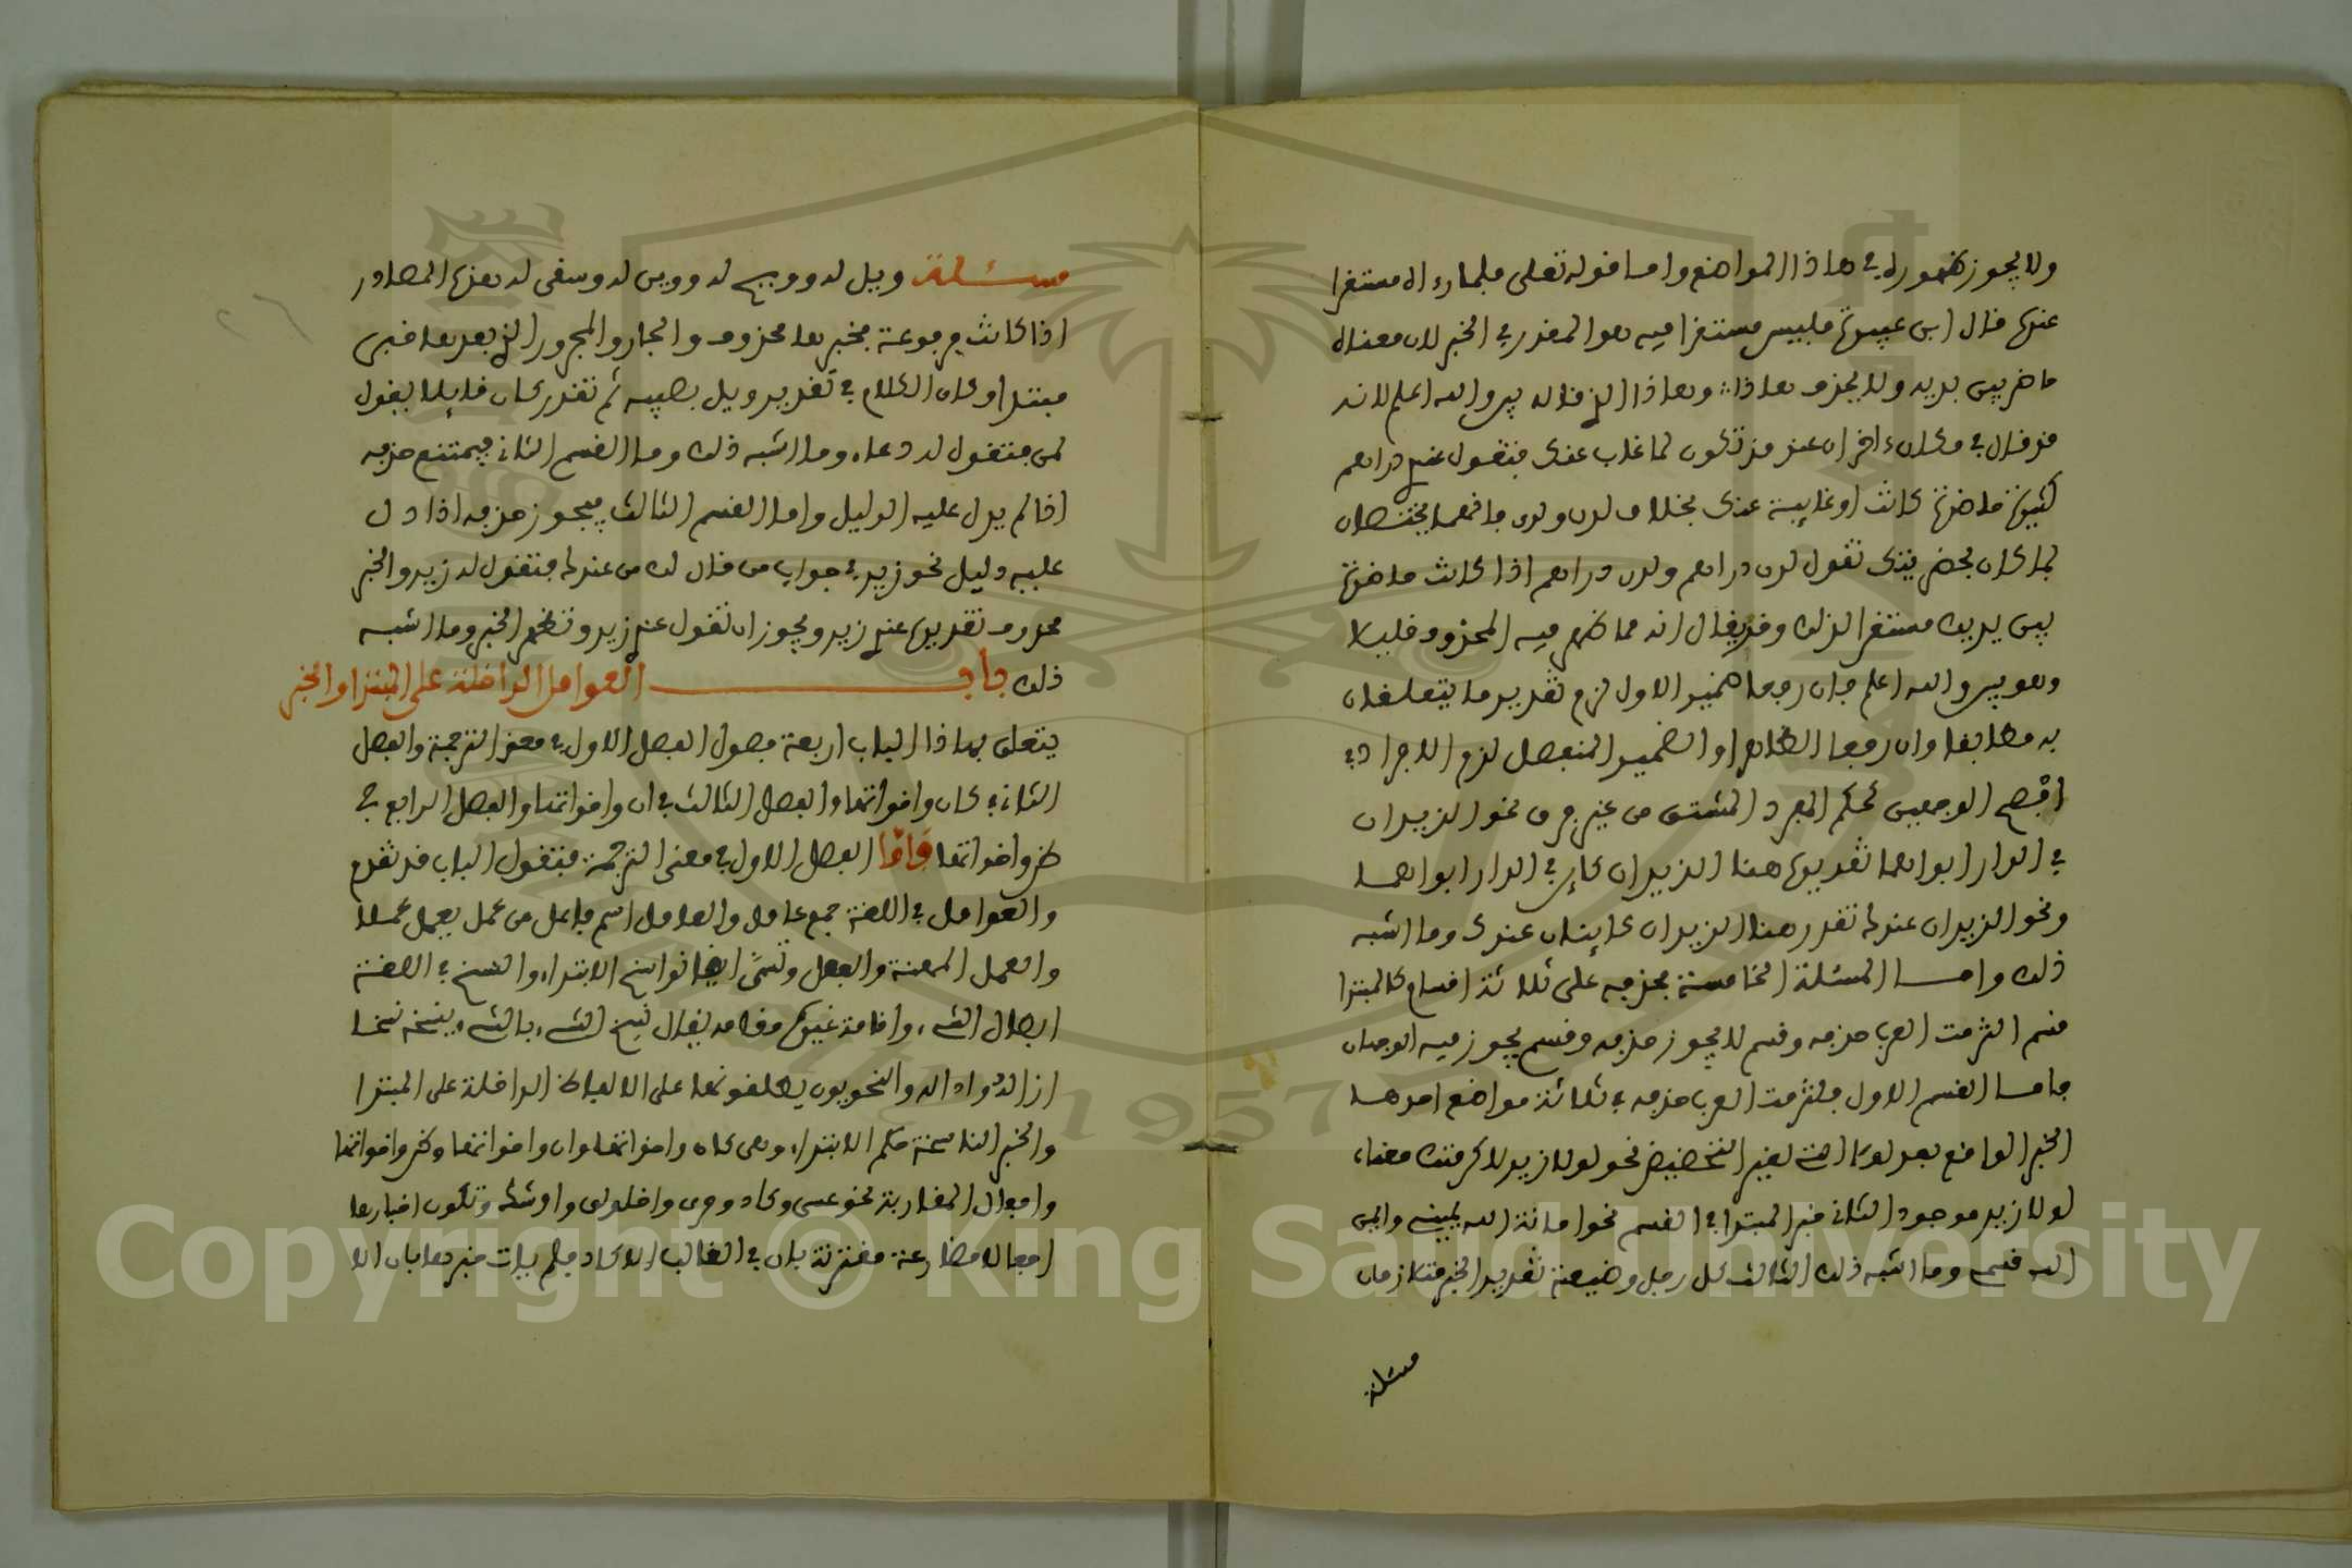 ولا يجوز ظهوره في هاذا المواضع واما قوله تعلى فلما رءاه مستقرا
عنده قال ابن عيينة فليس مستقرا فيه هو المقدر في الخبر لان معناه
حاضر بين يديه ولا يحذف هاذا وهاذا الذي قاله بين والله اعلم لانه
قد قال في مكان ءاخر ان عند قد تكون لما غاب عنك فتقول عندي دراهم
كثيرة حاضرة كانت او غايبة عنك بخلاف لدن ولدى فانهما يختصان
بما كان بحضرتك تقول لدي دراهم ولدى دراهم اذا كانت حاضرة
بين يديك مستقرا لذلك وقد يقال انه مما ظهر فيه المحذوف قليلا
وهو بين والله اعلم فان رفعا ضمير الاول لزم تقدير ما يتعلقان
به مطابقا وان رفعا الظاهر او الضمير المنفصل لزم الافراد في
افصح الوجهين كحكم المفرد المشتق من غير فرق نحو الزيدان
في الدار ابواهما تقديره هنا الزيدان كاين في الدار ابواهما
ونحو الزيدان عندك تقدر هنا الزيدان كاينان عندك وما اشبه
ذلك واما المسئلة الخامسة فحذفه على ثلاثة اقسام كالمبتدا
قسم التزمت العرب حذفه وقسم لا يجوز حذفه وقسم يجوز فيه الوجهان
فاما القسم الاول فالتزمت العرب حذفه في ثلاثة مواضع احدها
الخبر الواقع بعد لولا لغير التحضيض نحو لولا زيد لاكرمتك معناه
لولا زيد موجود الثاني خبر المبتدا في القسم نحو امانة الله يمينه وايمن
الله قسمه وما اشبه ذلك الثالث كل رجل وضيعته تقدير الخبر متلازمان
مسئلة
مسئلة ويل له وويح له وويس له وسقى له بهذه المصادر
اذا كانت مرفوعة فخبرها محذوف والجار والمجرور الذي بعدها خبر
مبتدا وكان الكلام في تقدير ويل يصيبه ثم تقدر كان قايلا يقول
لمن فتقول له دعاء وما اشبه ذلك وما القسم الثاني فيمتنع حذفه
اذا لم يدل عليه الدليل واما القسم الثالث فيجوز حذفه اذا دل
عليه دليل نحو زيد في جواب من قال لك من عندك فتقول له زيد والخبر
محذوف تقديره عندي زيد ويجوز ان تقول عندي زيد وتظهر الخبر وما اشبه
ذلك باب العوامل الداخلة على المبتدا والخبر
يتعلق بهاذا الباب اربعة فصول الفصل الاول في معنى الترجمة والفصل
الثاني في كان واخواتها والفصل الثالث في ان واخواتها والفصل الرابع في
ظن واخواتها واما الفصل الاول في معنى الترجمة فتقول الباب قد تقدم
والعوامل في اللغة جمع عامل والعامل اسم فاعل من عمل يعمل عملا
والعمل المهنة والفعل وتسمى ايضا نواسخ الابتداء والنسخ في اللغة
ابطال الشيء واقامة غيره مقامه يقال نسخ الشيء بالشيء ينسخه نسخا
ازاله واداله والنحويون يطلقونها على الالفاظ الداخلة على المبتدا
والخبر الناسخة حكم الابتداء وهي كان واخواتها وان واخواتها وظن واخواتها
وافعال المقاربة نحو عسى وكاد وحرى واخلولق واوشك وتكون اخبارها
افعالا مضارعة مقترنة بان في الغالب الا كاد فلم يات خبرها بان الا
Copyright © King Saud University
1957